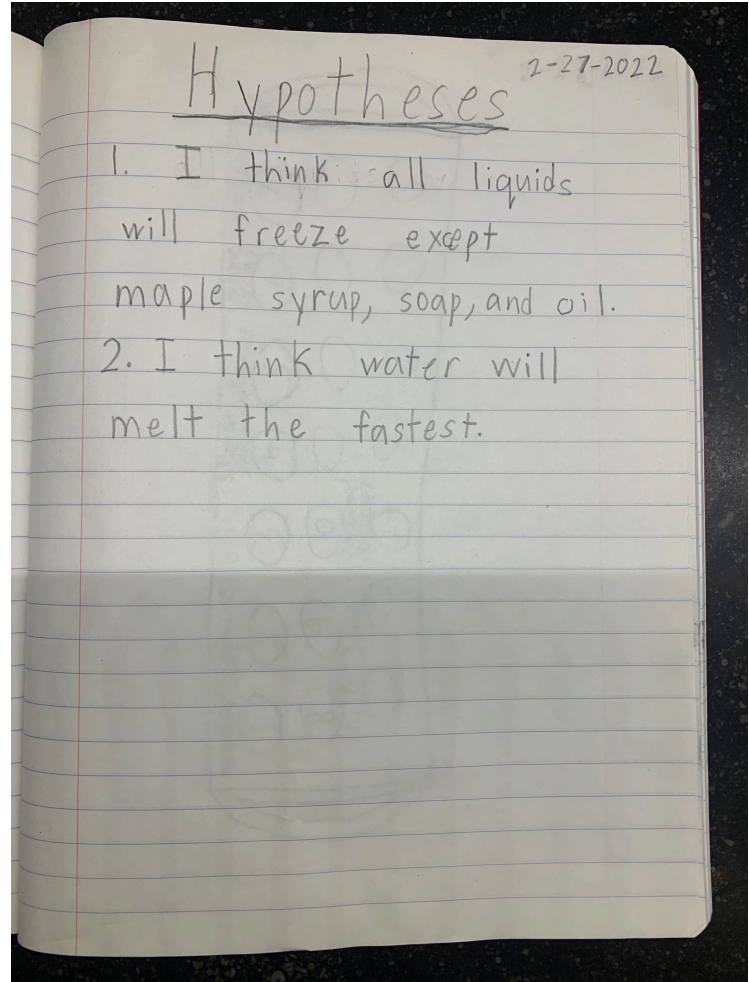 2-27-2022
Hypotheses
1. I think all liquids
will freeze except
maple syrup, soap, and oil.
2. I think water will
melt the fastest.